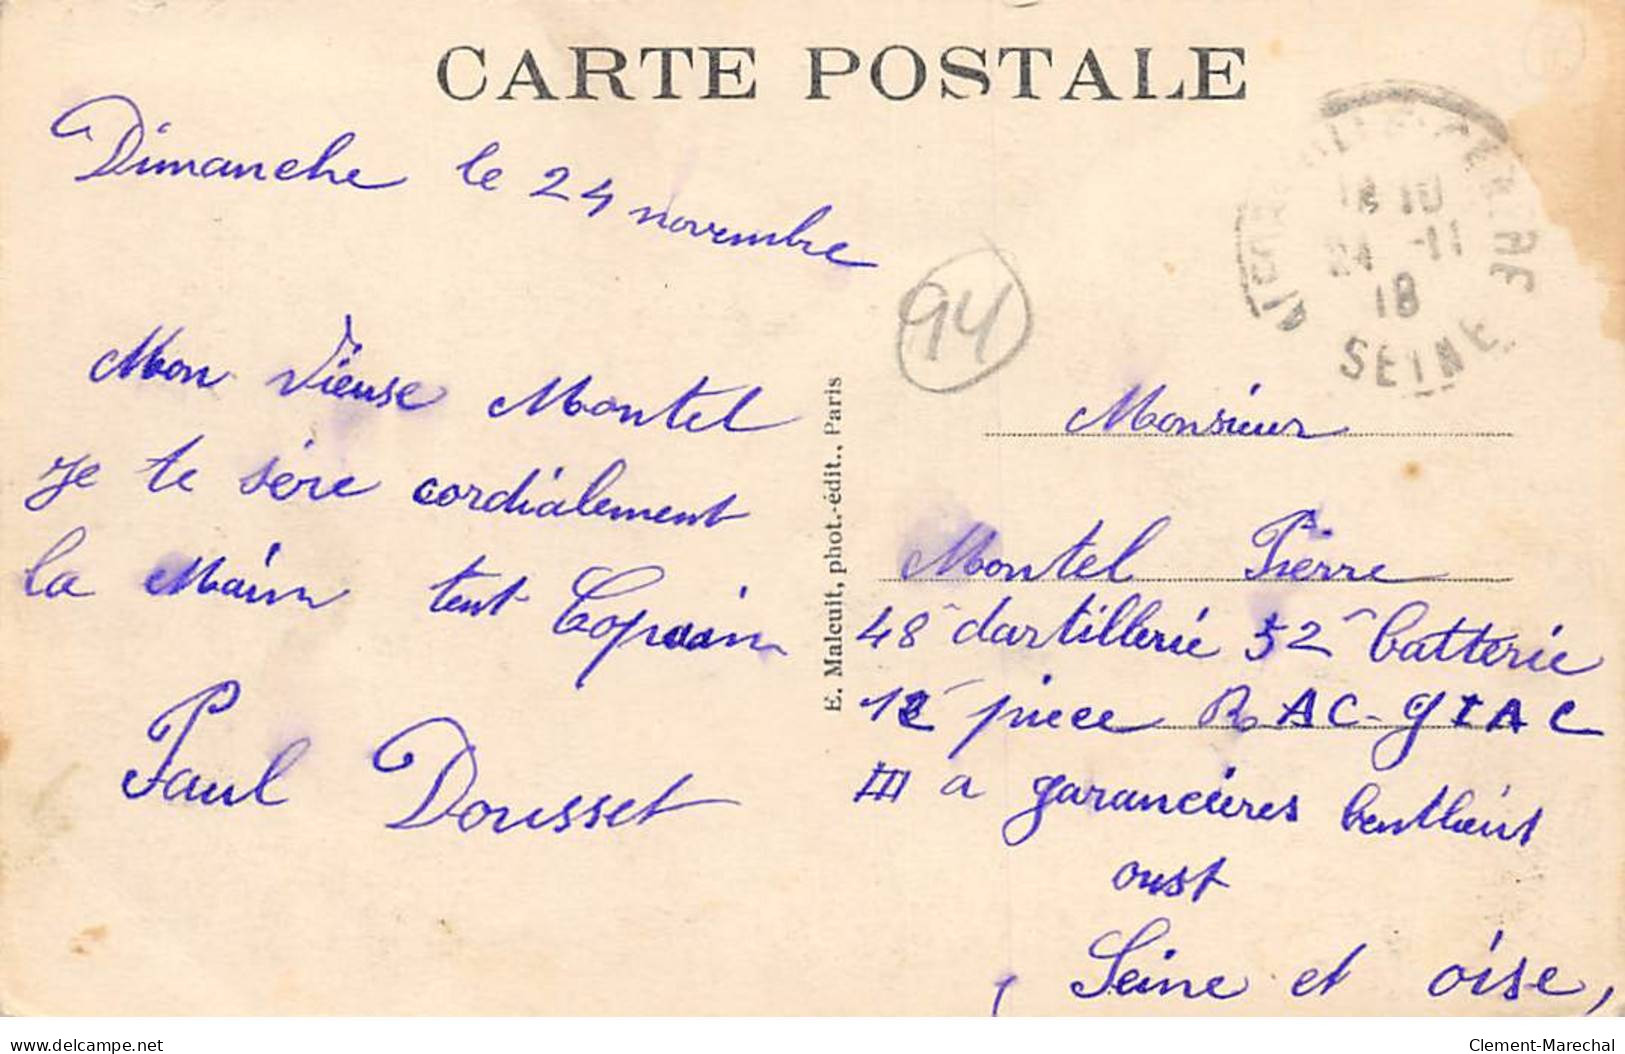 CARTE POSTALE
Dimanche le 24 novembre
Mon vieuse Montel
Je te sére cordialement
la Main tent Copain
Paul Dousset
E. Malcuit, phot.-édit., Paris
94
10
24 -11
18
SEINE
Monsieur
Montel Pierre
48e dartillerie 52e batterie
12e piece R AC-GIAC
III a garancières
oust
Seine et oise,
www.delcampe.net
Clement-Marechal